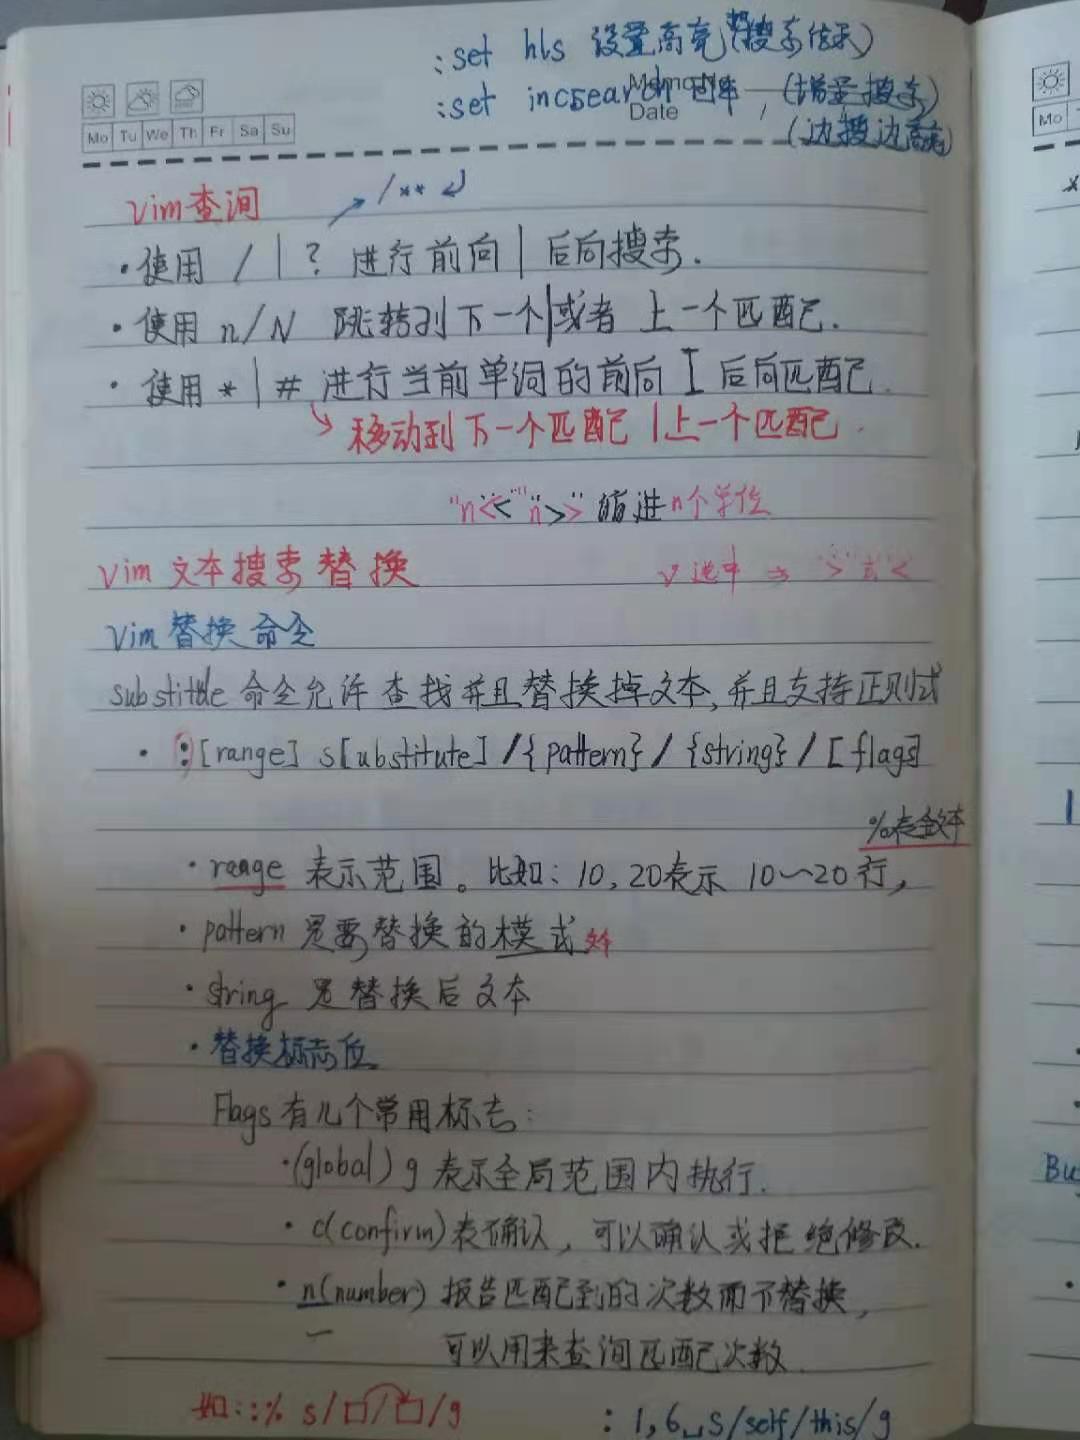 :set hls 设置高亮(搜索结果)
:set incsearch (增量搜索)
Date
(边搜边高亮)
Mo Tu We Th Fr Sa Su
Mo
Vim查询
/**
·使用 / | ? 进行前向 | 后向搜索.
·使用 n/N 跳转到下一个|或者 上一个匹配.
·使用 * | # 进行当前单词的前向 | 后向匹配.
移动到下一个匹配 | 上一个匹配.
"n<<" "n>>" 缩进n个单位
Vim 文本搜索替换
v 选中 ⇒ ">" "<"
Vim 替换命令
substitute 命令允许查找并且替换掉文本,并且支持正则式
· :[range] s[ubstitute] /{pattern} / {string} / [flags]
%表全文本
·range 表示范围。比如:10,20表示 10~20行,
·pattern 是要替换的模式
·string 是替换后文本
·替换标志位
Flags有几个常用标志:
·(global) g 表示全局范围内执行.
·c(confirm)表确认,可以确认或拒绝修改.
·n(number) 报告匹配到的次数而不替换,
可以用来查询匹配次数
如::% s/□/□/g
:1,6␣s/self/this/g